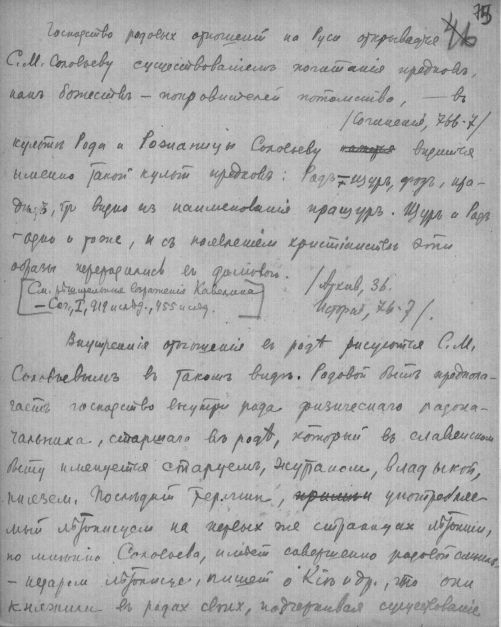 75
46
Господство родовых отношений на Руси открывается
С.М. Соловьеву существованіемъ почитанія предковъ,
какъ божествъ – покровителей потомства, — въ
/Сочинения, 766-7/
культѣ Рода и Рожаницы Соловьеву видится
именно такой культ предковъ: Родъ – щуръ, дѣдъ, пра-
дѣдъ, видно из наименования пращуръ. Щуръ и Родъ
– одно и тоже, и съ появленіем христіанства эти
образы переродились въ домового. /Архив, 36.
[См. возражение Кавелина
– Соч., I, 919 и слѣд., 955 и слѣд.]
История, 76-7/.
Внутренния отношения в родѣ рисуются С.М.
Соловьевымъ в такомъ видѣ. Родовой бытъ предпола-
гаетъ господство внутри рода физического родона-
чальника, старшаго в родѣ, который въ славянском
быту именуется старцемъ, жупаном, владыкой,
князем. Послѣдній термин, употребляе-
мый лѣтописцем на первых же страницах лѣтописи,
по мнѣнію Соловьева, имѣет совершенно родовой смысл
– недаром лѣтописец, пишет о Кіѣ и др., что они
княжили въ родах своих, подчеркивая существование